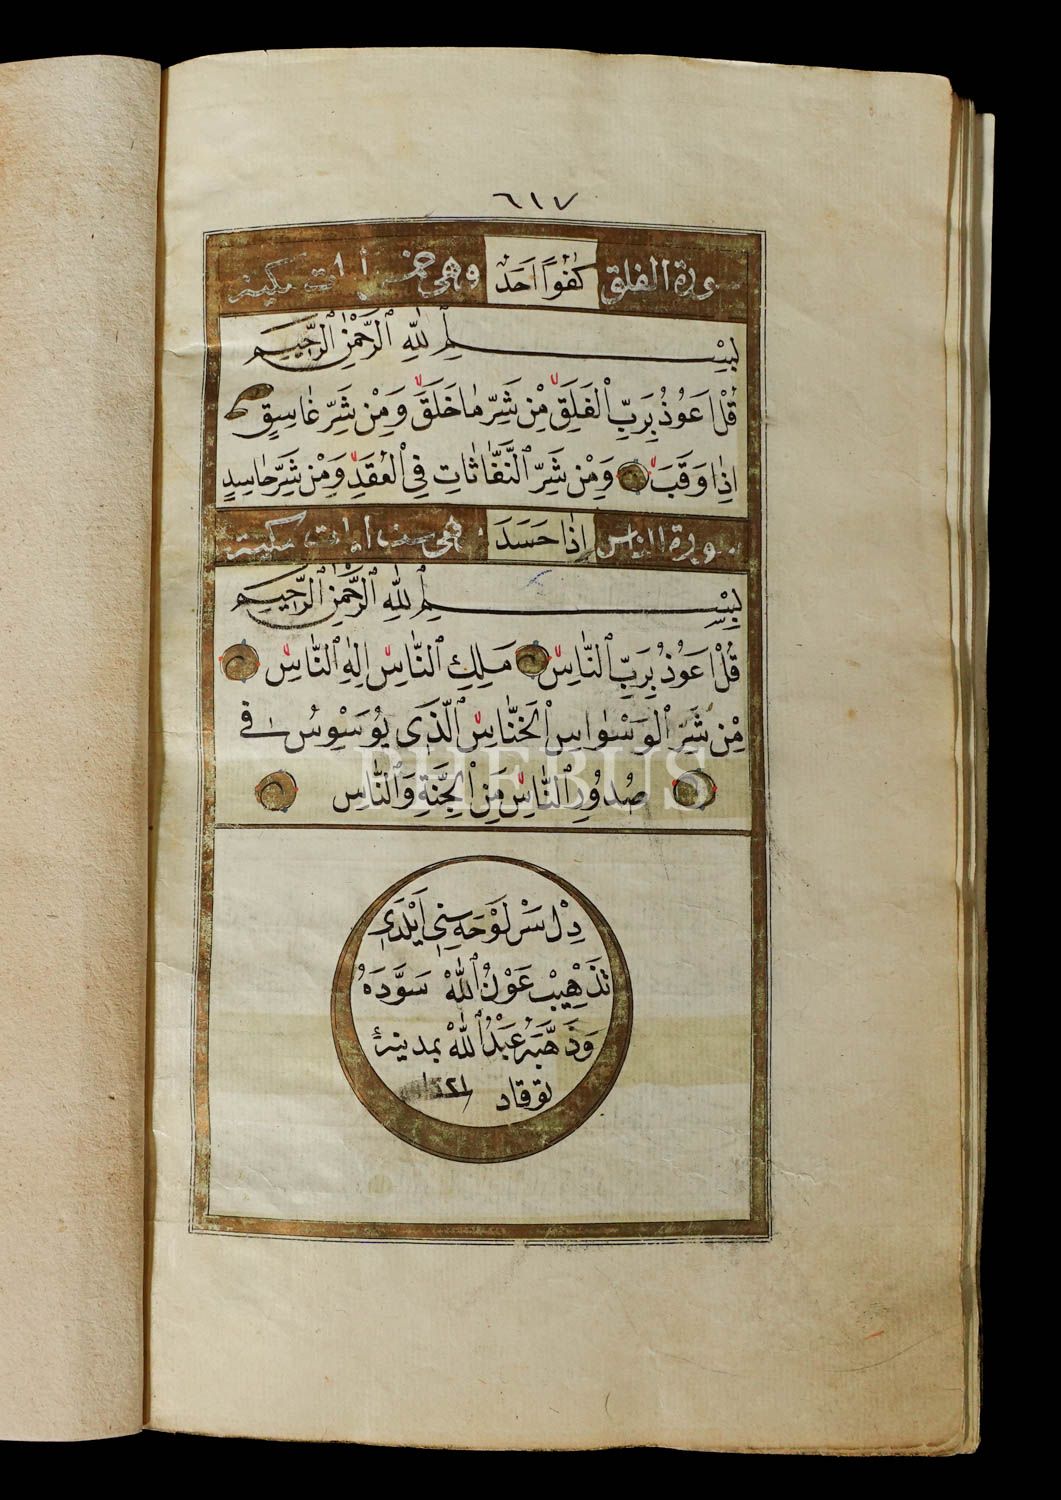 ٦١٧
سورة الفلق كُفُوًا اَحَدٌ وهى خمس آيات مكية
بِسْمِ اللّٰهِ الرَّحْمٰنِ الرَّحِيمِ
قُلْ اَعُوذُ بِرَبِّ الْفَلَقِ مِنْ شَرِّ مَا خَلَقَ وَمِنْ شَرِّ غَاسِقٍ
اِذَا وَقَبَ وَمِنْ شَرِّ النَّفَّاثَاتِ فِي الْعُقَدِ وَمِنْ شَرِّ حَاسِدٍ
سورة الناس اِذَا حَسَدَ هى ست آيات مكية
بِسْمِ اللّٰهِ الرَّحْمٰنِ الرَّحِيمِ
قُلْ اَعُوذُ بِرَبِّ النَّاسِ مَلِكِ النَّاسِ اِلٰهِ النَّاسِ
مِنْ شَرِّ الْوَسْوَاسِ الْخَنَّاسِ الَّذِى يُوَسْوِسُ فِى
صُدُورِ النَّاسِ مِنَ الْجِنَّةِ وَالنَّاسِ
PHEBUS
دِلْ سَرْلَوْحَهسِنِى اَيْلَدِى
تَذْهِيبْ عَوْنُ اللّٰهْ سَوَّدَهُ
وَذَهَّبَهُ عَبْدُ اللّٰهْ بمدينهٔ
توقاد